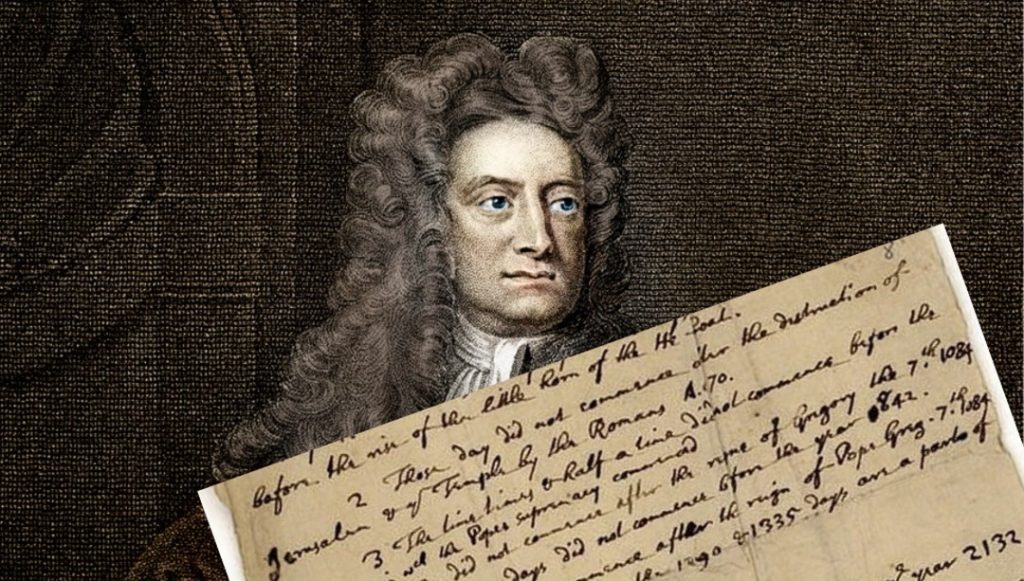 8
before the rise of the little horn of the He Goat.
2 Those day did not commence after the destruction of
Jerusalem & ye Temple by the Romans A. 70.
3 The time times & half a time did not commence before the
wch the Popes supremacy commenced
did not commence after the reigne of Gregory the 7th. 1084
days did not commence before the year 842.
commence after the reign of Pope Greg. 7th. 1084
the 1290 & 1335 days are a parts of
year 2132